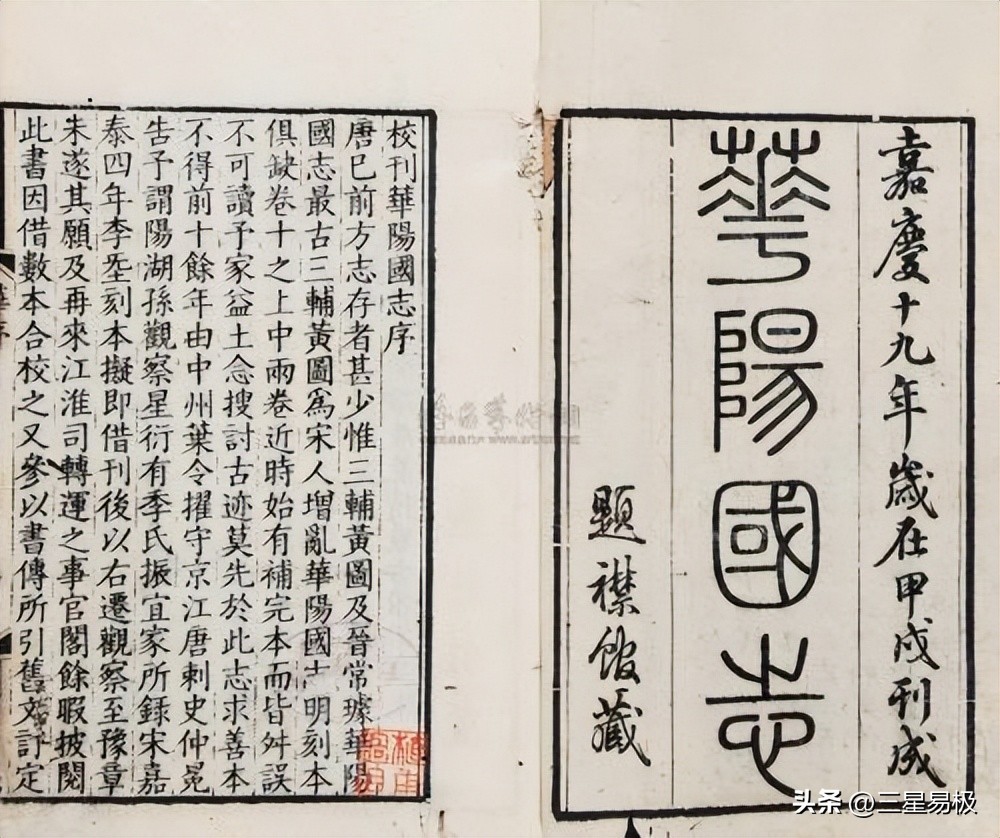 嘉慶十九年歲在甲戌刊成
華陽國志
題襟館藏
校刊華陽國志序
唐已前方志存者甚少惟三輔黃圖及晉常璩華陽
國志最古三輔黃圖為宋人增亂華陽國志明刻本
俱缺卷十之上中兩卷近時始有補完本而皆舛誤
不可讀予家益土念搜討古迹莫先於此志求善本
不得前十餘年由中州葉令擢守京江唐刺史仲冕
告予謂陽湖孫觀察星衍有季氏振宜家所錄宋嘉
泰四年李𡊮刻本擬即借刊後以右遷觀察至豫章
未遂其願及再來江淮司轉運之事官閣餘暇披閱
此書因借數本合校之又參以書傳所引舊文訂定
头条 @三星易极